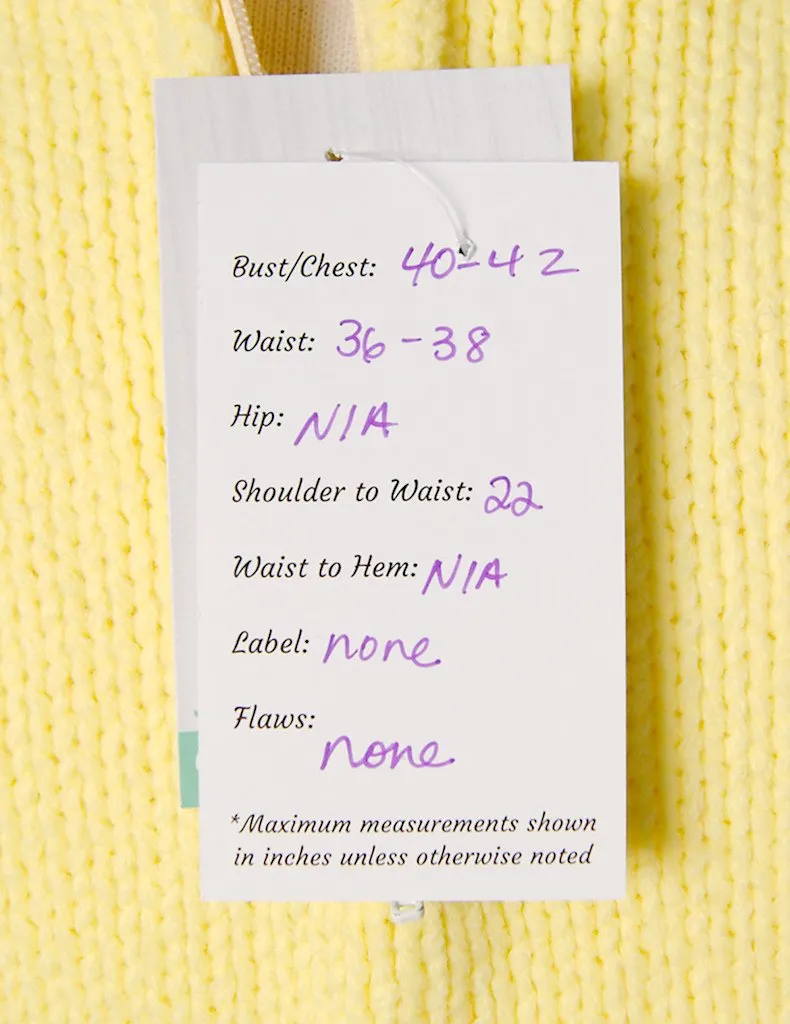 Bust/Chest: 40-42
Waist: 36-38
Hip: N/A
Shoulder to Waist: 22
Waist to Hem: N/A
Label: none
Flaws:
none
*Maximum measurements shown
in inches unless otherwise noted